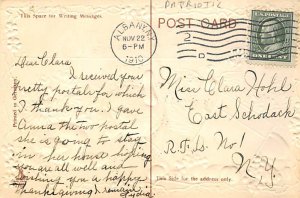 PATRIOTIC
This Space for Writing Messages.
POST CARD
ALBANY, N.Y.
NOV 22
6-PM
1910
2
D
Dear Clara
I received your
pretty postal for which
I thank you. I gave
Anna the two postal
she is going to stay
in her house hoping
you are all well and
wishing you a happy
thanksgiving I remain
Lydia
Miss Clara Hohl
East Schodack
R.F.D. No 1
N.Y.
This Side for the address only.